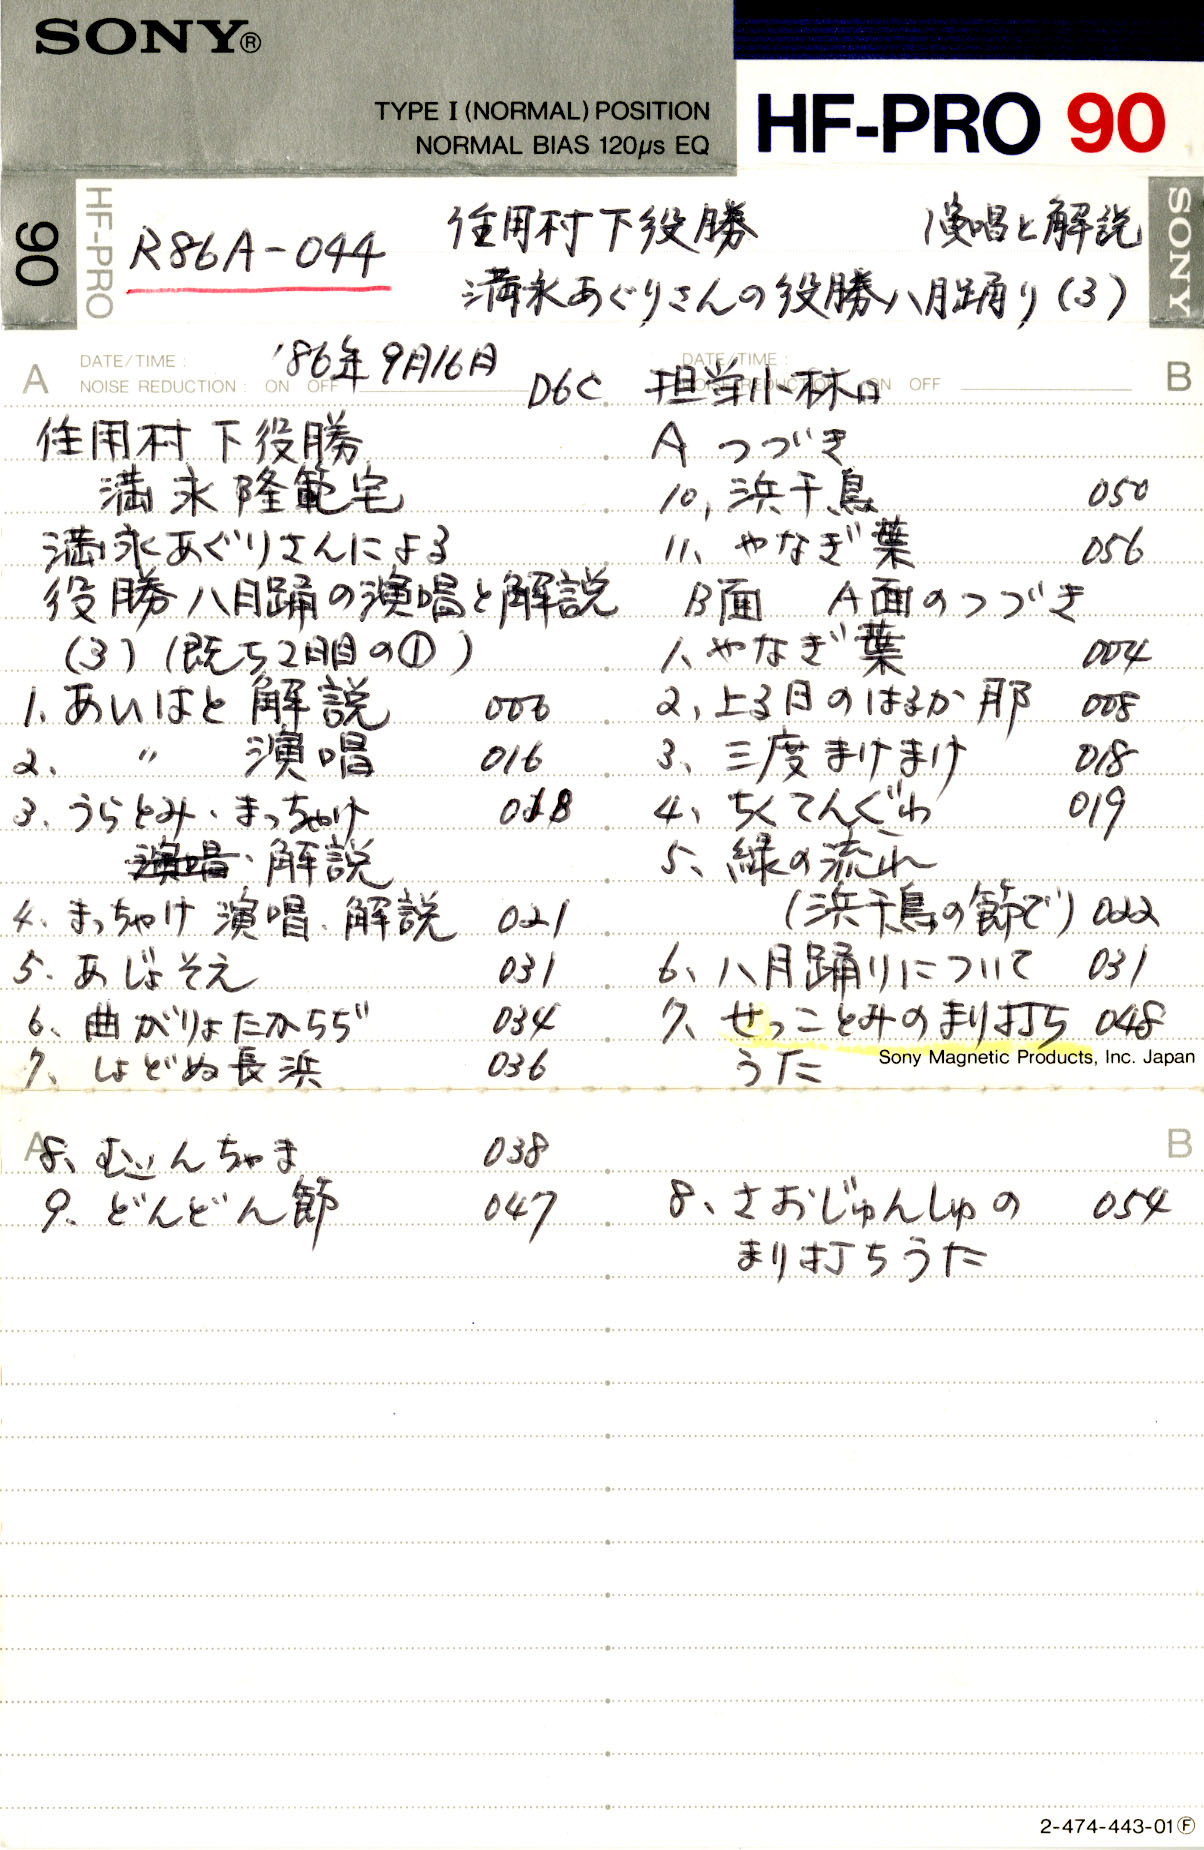 SONY®
TYPE I (NORMAL) POSITION
NORMAL BIAS 120μs EQ
HF-PRO 90
90
HF-PRO
R86A-044
住用村下役勝 演唱と解説
満永あぐりさんの役勝八月踊り(3)
SONY
A DATE/TIME: '86年9月16日
NOISE REDUCTION: ON OFF
D6C
DATE/TIME: B
NOISE REDUCTION: ON OFF
担当小林
住用村下役勝
満永隆範宅
満永あぐりさんによる
役勝八月踊の演唱と解説
(3)(既ち2日目の①)
1、あいはと 解説 006
2、 〃 演唱 016
3、うらとみ・まっちゃけ 018
演唱・解説
4、まっちゃけ 演唱、解説 021
5、あじょそえ 031
6、曲がりょたかちぢ 034
7、しょどぬ長浜 036
A
8、むぃんちゃま 038
9、どんどん節 047
A つづき
10、浜千鳥 050
11、やなぎ葉 056
B面 A面のつづき
1、やなぎ葉 004
2、上る日のはるか那 008
3、三度まけまけ 018
4、ちくてんぐわ 019
5、緑の流れ
(浜千鳥の節で) 022
6、八月踊りについて 031
7、せっことみのまり打ち 048
うた
Sony Magnetic Products, Inc. Japan
B
8、さおじゅんしゅの 054
まり打ちうた
2-474-443-01Ⓕ